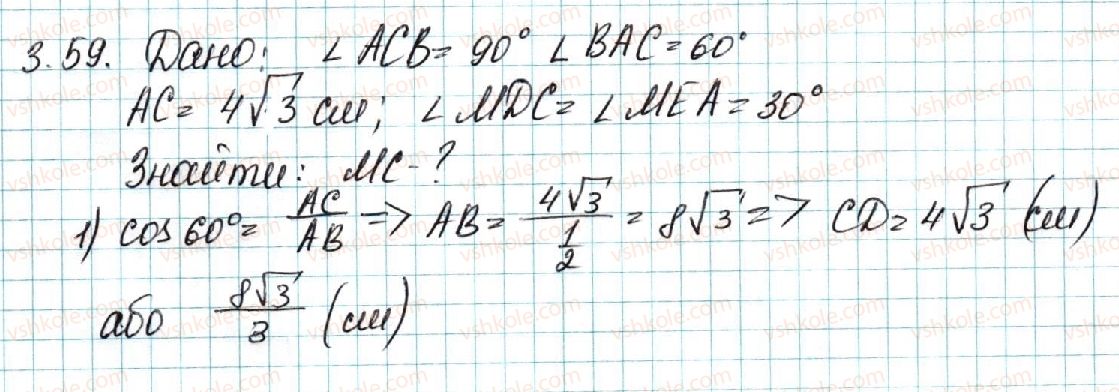 3.59. Дано: ∠ ACB = 90° ∠ BAC = 60°
AC = 4√3 см; ∠ MDC = ∠ MEA = 30°
Знайти: MC - ?
1) cos 60° = AC/AB => AB = 4√3/(1/2) = 8√3 => CD = 4√3 (см)
або 8√3/3 (см)